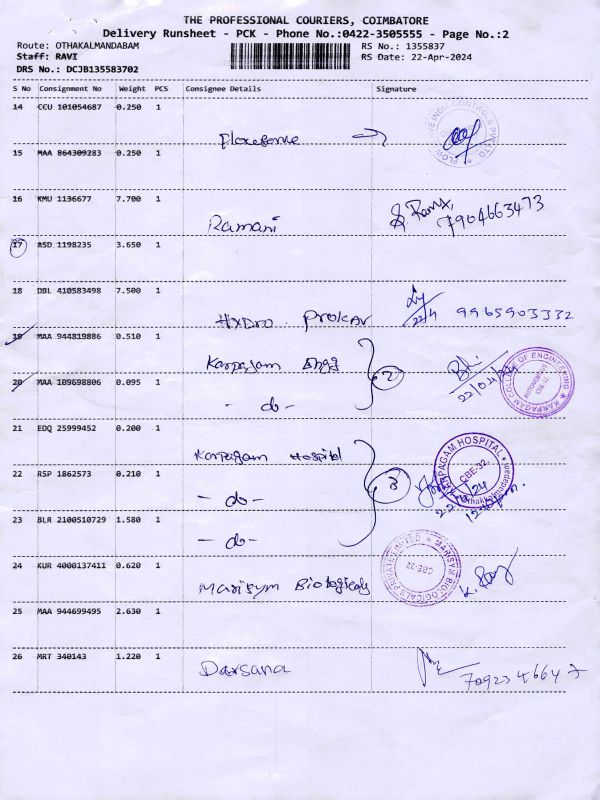 THE PROFESSIONAL COURIERS, COIMBATORE
Delivery Runsheet - PCK - Phone No.:0422-3505555 - Page No.:2
Route: OTHAKALMANDABAM RS No.: 1355837
Staff: RAVI RS Date: 22-Apr-2024
DRS No.: DCJB135583702
S No Consignment No Weight PCS Consignee Details Signature
14 CCU 101054687 0.250 1
15 MAA 864309283 0.250 1
16 KMU 1136677 7.700 1
Ramani 7904663473
17 ASD 1198235 3.650 1
18 DBL 410583498 7.500 1
Hydro Prokav 22/4 9965903332
19 MAA 944819886 0.510 1
Karpagam Engg 2 22/04/24
KARPAGAM COLLEGE OF ENGINEERING AUTONOMOUS CBE-32
20 MAA 109698806 0.095 1
- do -
21 EDQ 25999452 0.200 1
Karpagam Hospital
KARPAGAM HOSPITAL CBE-32 Othakkalmandapam
22 RSP 1862573 0.210 1
- do - 3
23 BLR 2100510729 1.580 1
- do -
24 KUR 4000137411 0.620 1
Marisym Biologicals
MARISYM BIOLOGICALS PRIVATE LIMITED CBE-32
25 MAA 944699495 2.630 1
26 MRT 340143 1.220 1
Darsana 7092346647